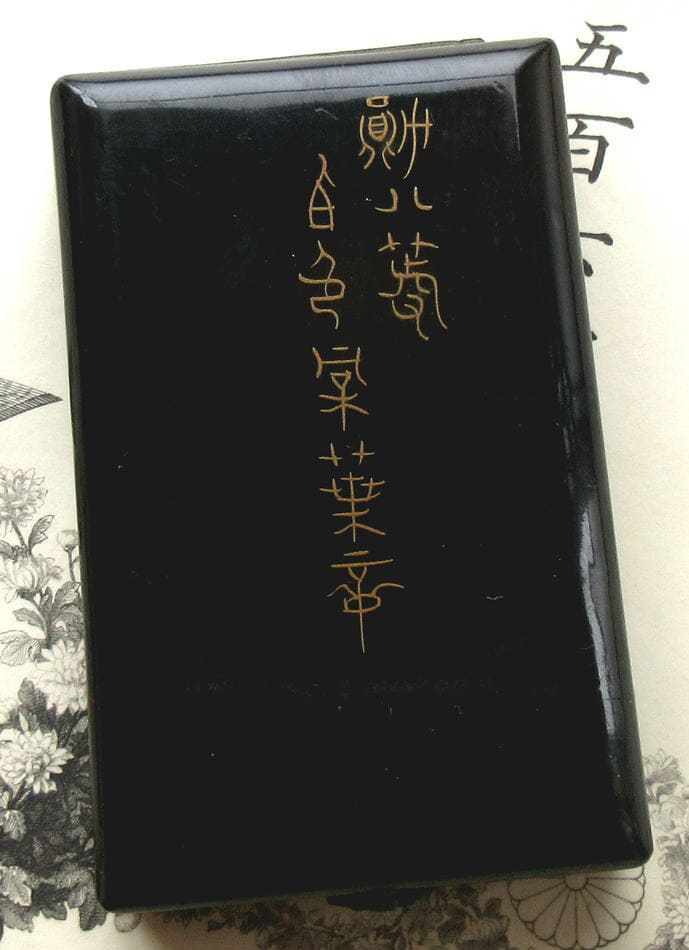 五百
勳八等
白色桐葉章